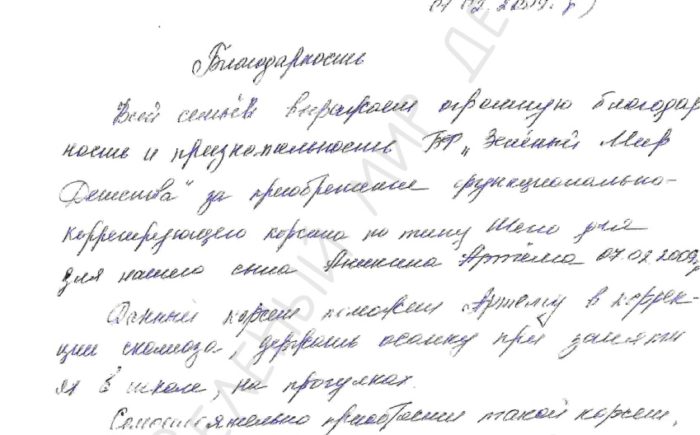 07.02.2009 г.)
Благодарность
Всей семьёй выражаем огромную благодар
ность и признательность БФ „Зелёный Мир
Детства" за приобретение функционально-
корректирующего корсета по типу Шено для
для нашего сына Аникина Артёма 07.02.2009г
Данный корсет поможет Артёму в коррек-
ции сколиоза, держать осанку при заняти
ях в школе, на прогулках.
Самостоятельно приобрести такой корсет,
ЗЕЛЕНЫЙ МИР ДЕ